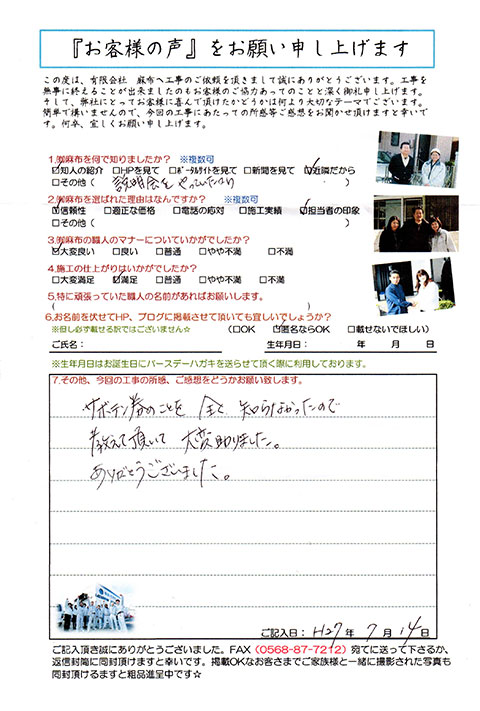 『お客様の声』をお願い申し上げます
この度は、有限会社 麻布へ工事のご依頼を頂きまして誠にありがとうございます。工事を
無事に終えることが出来ましたのもお客様のご協力あってのことと深く御礼申し上げます。
そして、弊社にとってお客様に喜んで頂けたかどうかは何より大切なテーマでございます。
簡単で構いませんので、今回の工事にあたっての所感等ご感想をお聞かせ頂けますと幸いで
す。何卒、宜しくお願い申し上げます。
1.㈲麻布を何で知りましたか? ※複数可
☑知人の紹介 □HPを見て □ポータルサイトを見て □新聞を見て ☑近隣だから
□その他( 説明会をやっていたから )
2.㈲麻布を選ばれた理由はなんですか? ※複数可
☑信頼性 □適正な価格 □電話の応対 □施工実績 ☑担当者の印象
□その他( )
3.㈲麻布の職人のマナーについていかがでしたか?
☑大変良い □良い □普通 □やや不満 □不満
4.施工の仕上がりはいかがでしたか?
□大変満足 ☑満足 □普通 □やや不満 □不満
5.特に頑張っていた職人の名前があればお願いします。
( )
6.お名前を伏せてHP、ブログに掲載させて頂いても宜しいでしょうか?
※但し必ず載せる訳ではございません☆ (□OK ☑匿名ならOK □載せないでほしい)
ご氏名: 生年月日: 年 月 日
※生年月日はお誕生日にバースデーハガキを送らせて頂く際に利用しております。
7.その他、今回の工事の所感、ご感想をどうかお願い致します。
サボテン券のことを 全て 知らなかったので
教えて頂いて 大変助りました。
ありがとうございました。
ご記入日: H27年 7月 14日
ご記入頂き誠にありがとうございました。FAX(0568-87-7212)宛てに送って下さるか、
返信封筒に同封頂けますと幸いです。掲載OKなお客さまでご家族様と一緒に撮影された写真も
同封頂けるますと粗品進呈中です☆